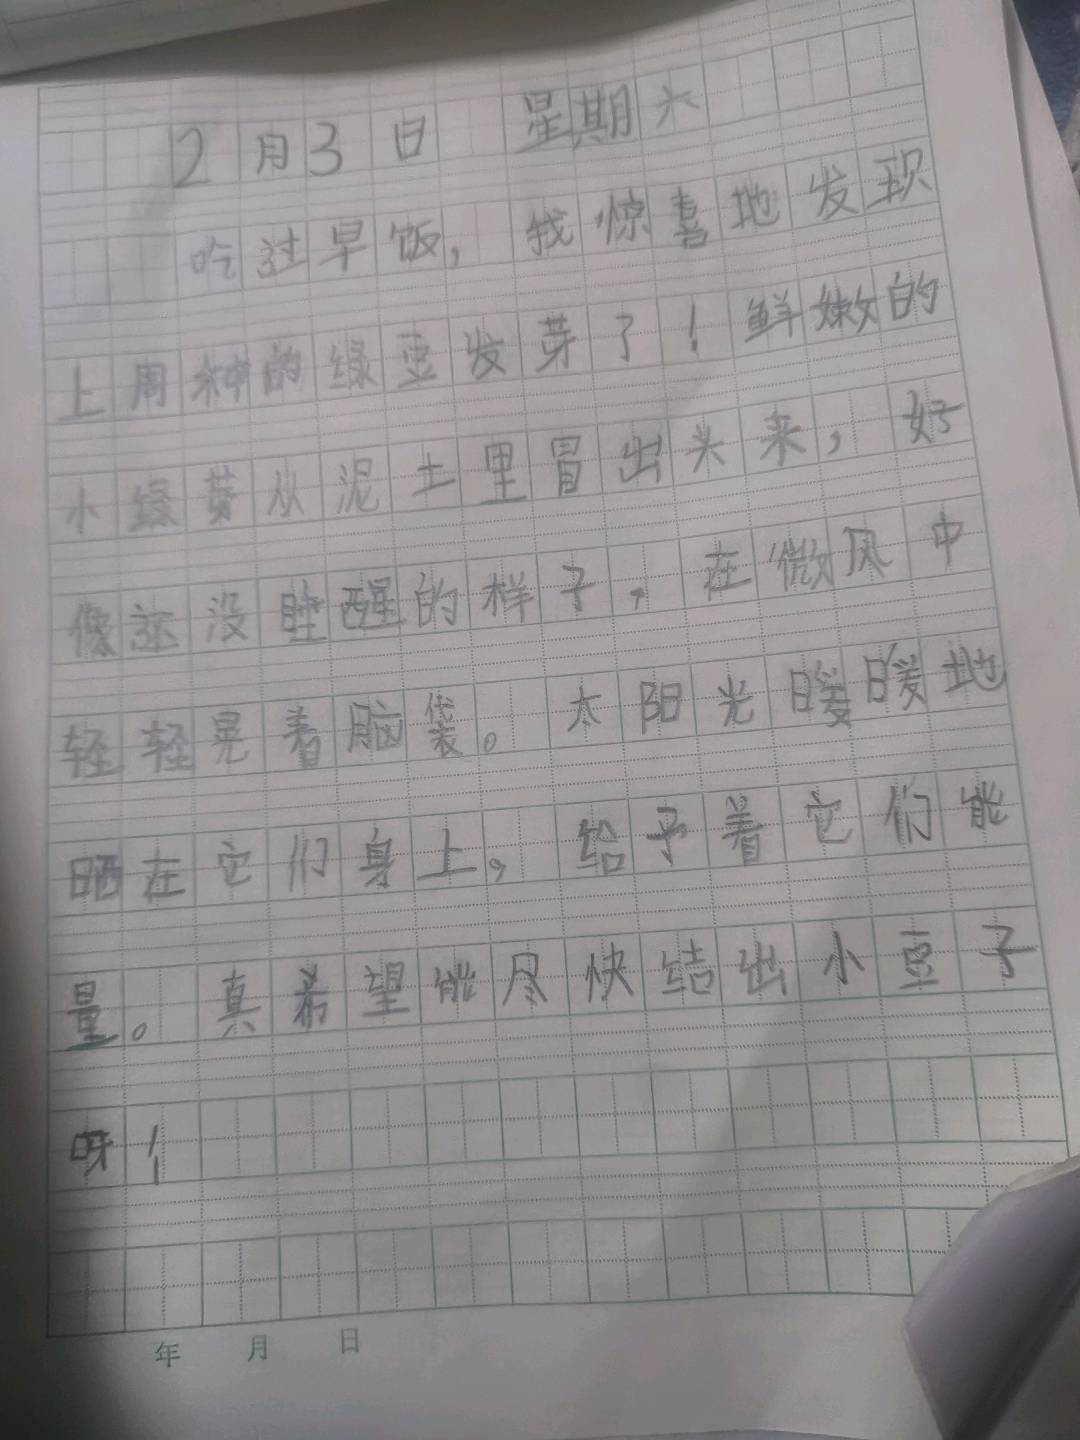 2月3日 星期六
吃过早饭，我惊喜地发现
上周种的绿豆发芽了！鲜嫩的
小绿芽从泥土里冒出头来，好
像还没睡醒的样子，在微风中
轻轻晃着脑袋。太阳光暖暖地
晒在它们身上，给予着它们能
量。真希望能尽快结出小豆子
呀！
年 月 日